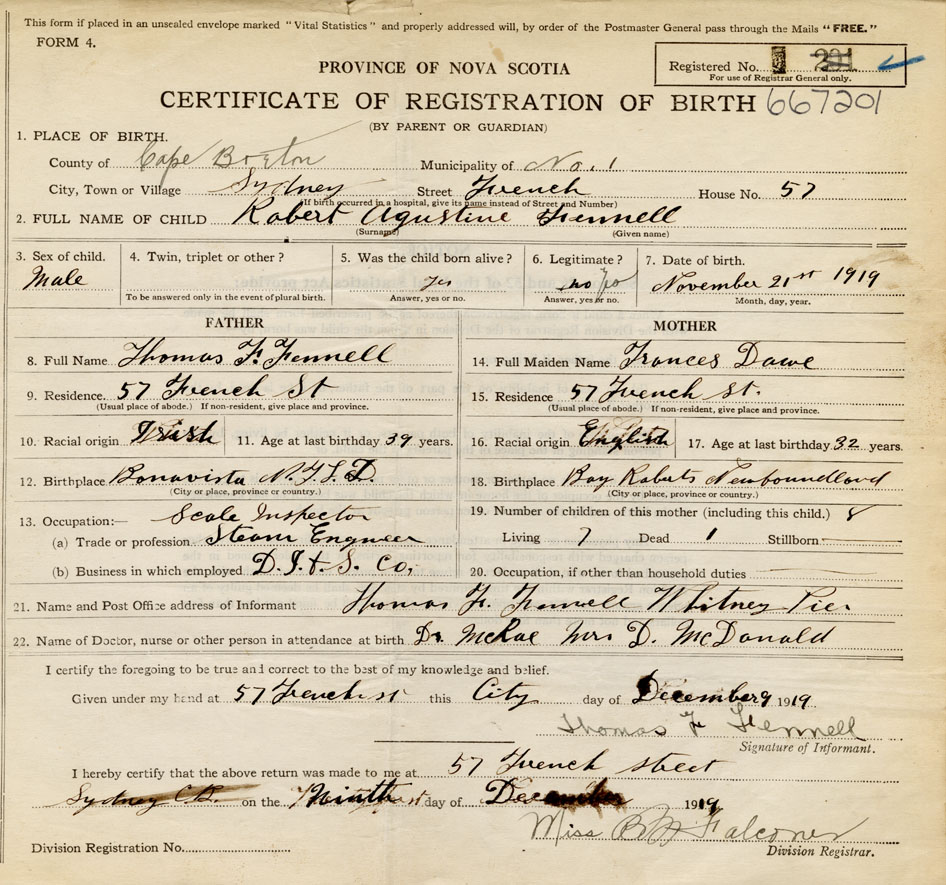 This form if placed in an unsealed envelope marked "Vital Statistics" and properly addressed will, by order of the Postmaster General pass through the Mails "FREE."
FORM 4.
Registered No.
For use of Registrar General only.
PROVINCE OF NOVA SCOTIA
CERTIFICATE OF REGISTRATION OF BIRTH 667201
(BY PARENT OR GUARDIAN)
1. PLACE OF BIRTH.
County of Cape Breton Municipality of No. 1
City, Town or Village Sydney Street French House No. 57
(If birth occurred in a hospital, give its name instead of Street and Number)
2. FULL NAME OF CHILD Robert Agustine Fennell
(Surname) (Given name)
3. Sex of child. 4. Twin, triplet or other? 5. Was the child born alive? 6. Legitimate? 7. Date of birth.
Male yes no November 21st 1919
To be answered only in the event of plural birth. Answer, yes or no. Answer, yes or no. Month, day, year.
FATHER
8. Full Name Thomas F. Fennell
9. Residence. 57 French St
(Usual place of abode.) If non-resident, give place and province.
10. Racial origin Irish 11. Age at last birthday 39 years.
12. Birthplace Bonavista N.F.L.D.
(City or place, province or country.)
13. Occupation:— Scale Inspector
(a) Trade or profession. Steam Engneer
(b) Business in which employed D. I. & S. Co.
MOTHER
14. Full Maiden Name Frances Dawe
15. Residence 57 French St.
(Usual place of abode.) If non-resident, give place and province.
16. Racial origin English 17. Age at last birthday 32 years.
18. Birthplace Bay Roberts Newfoundland
(City or place, province or country.)
19. Number of children of this mother (including this child.) 8
Living 7 Dead 1 Stillborn
20. Occupation, if other than household duties
21. Name and Post Office address of Informant Thomas F. Fennell Whitney Pier
22. Name of Doctor, nurse or other person in attendance at birth Dr. McRae Mrs D. McDonald
I certify the foregoing to be true and correct to the best of my knowledge and belief.
Given under my hand at 57 French st this City day of December 9 1919
Thomas F Fennell
Signature of Informant.
I hereby certify that the above return was made to me at 57 French street
Sydney C.B. on the Ninth day of December 1919
Miss Falconer
Division Registration No. Division Registrar.